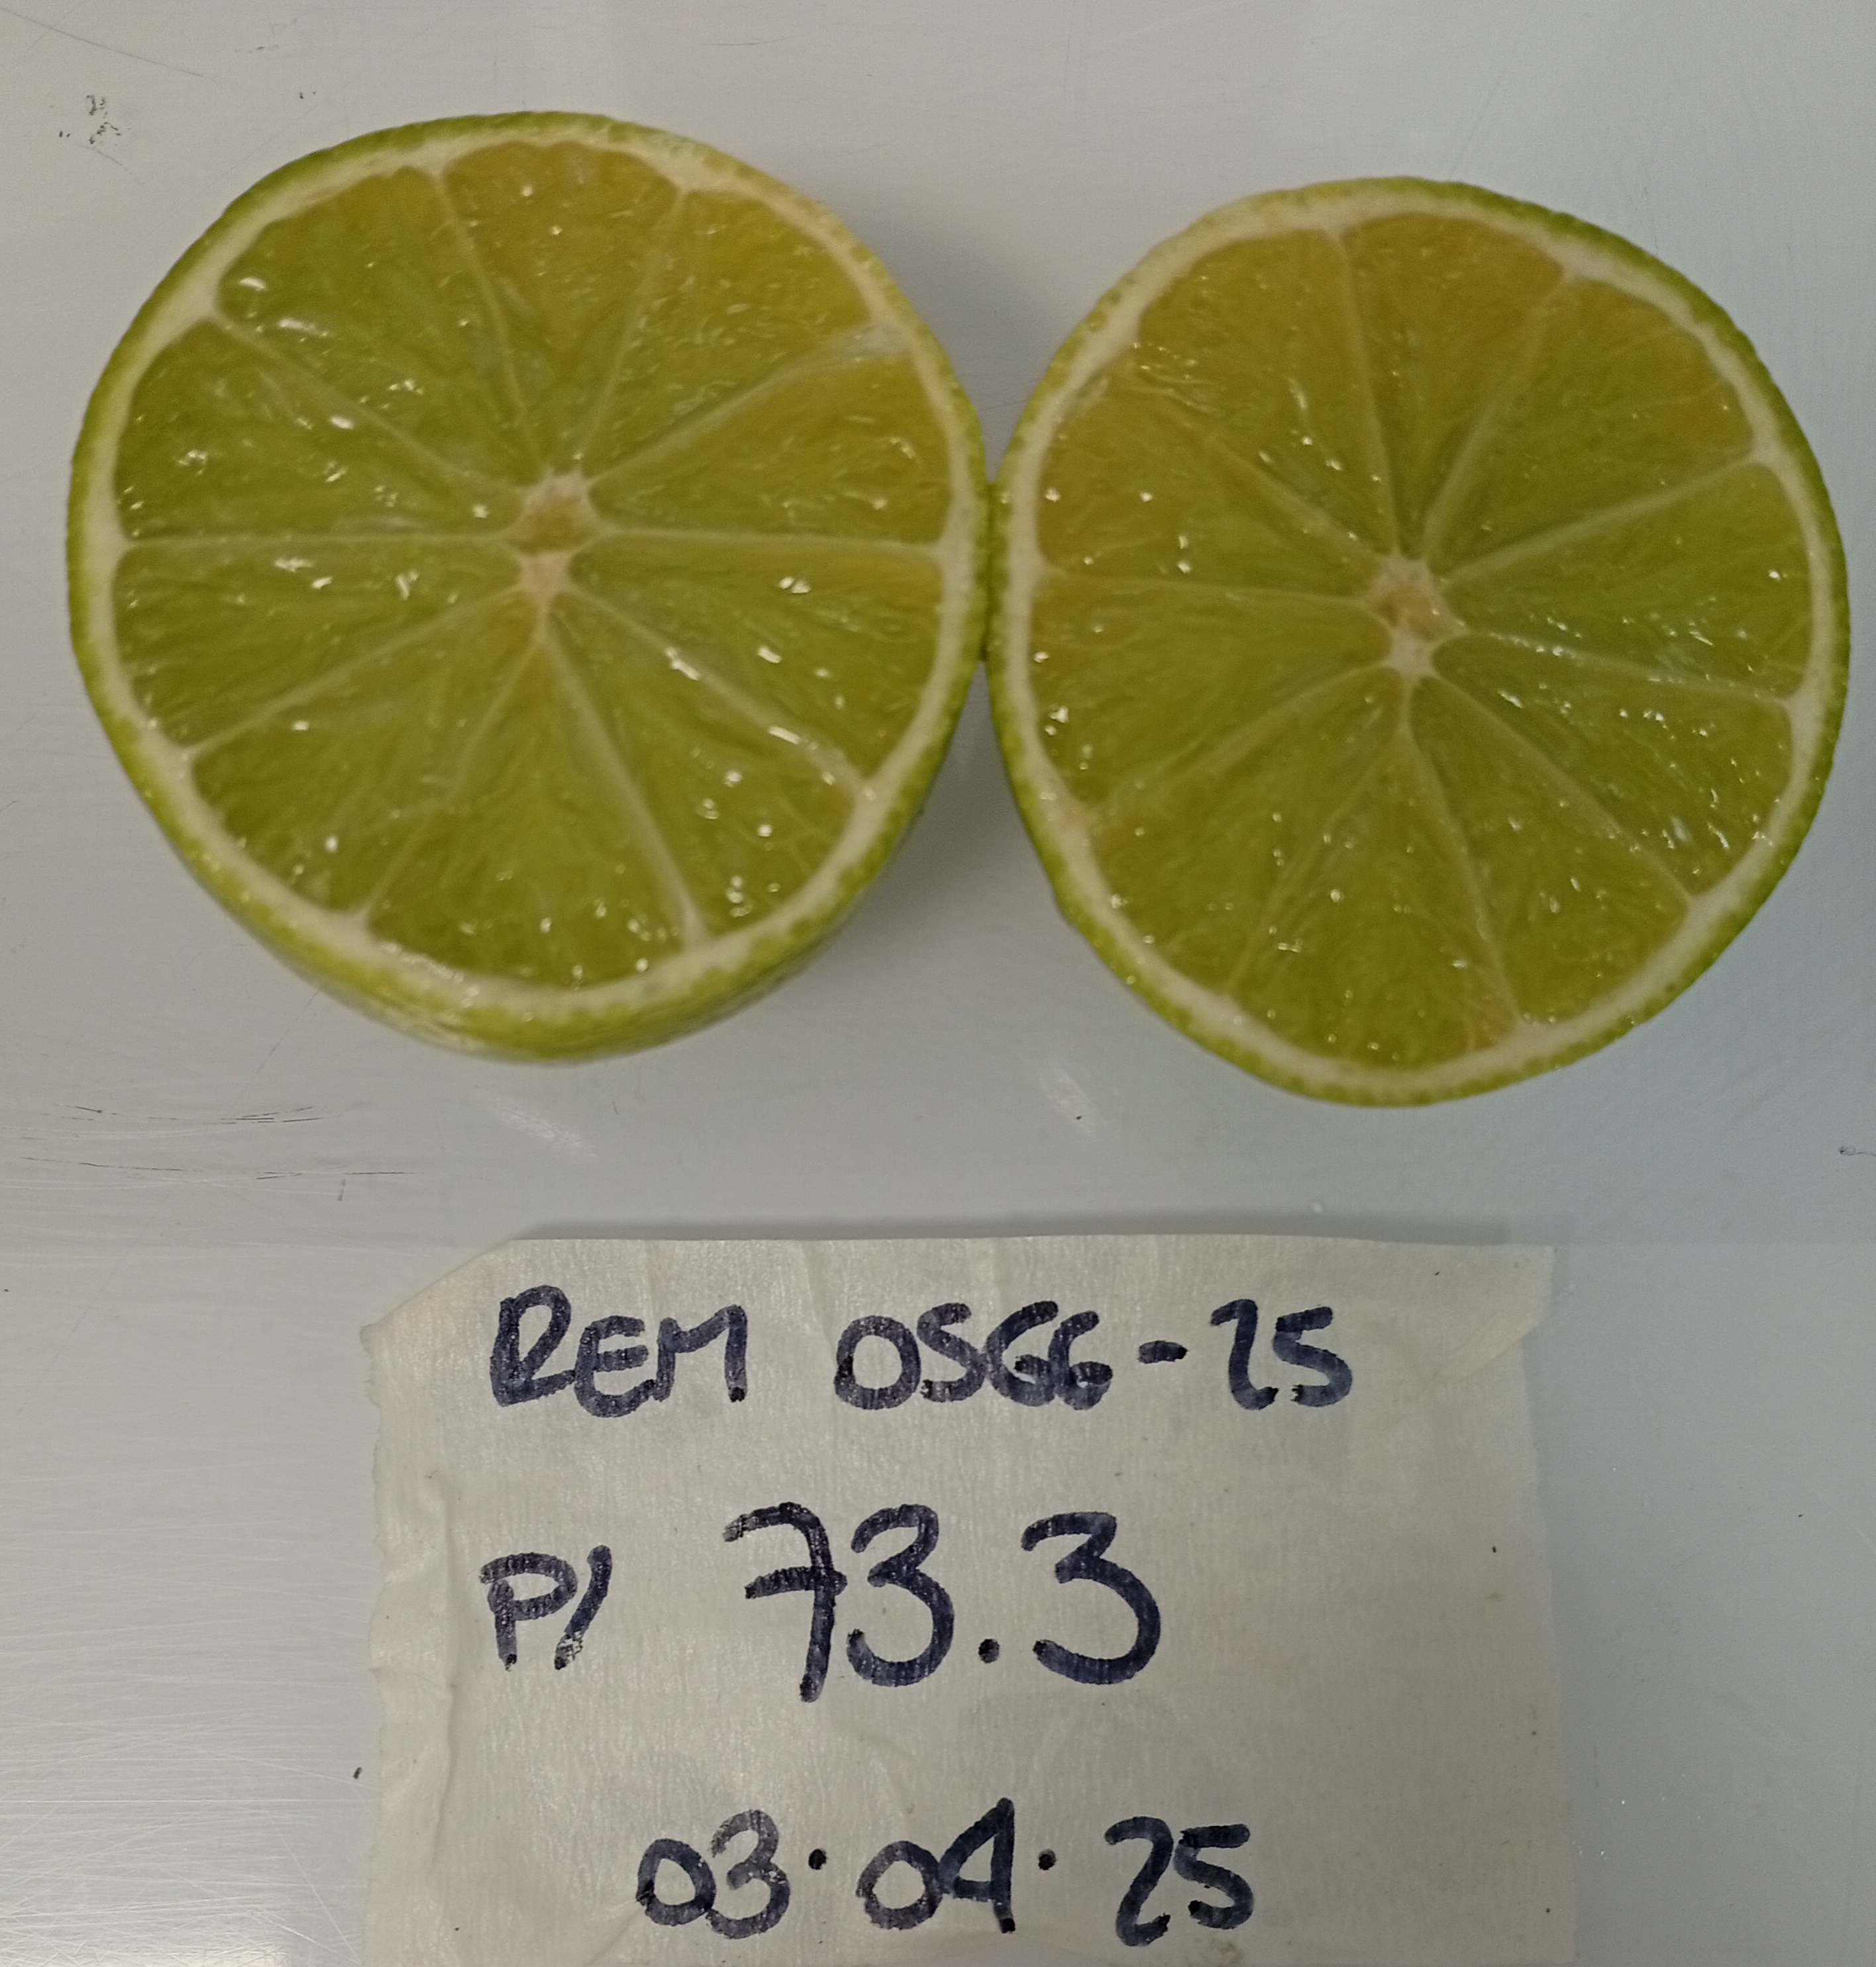 REM 0566-25
P/ 73.3
03.04.25